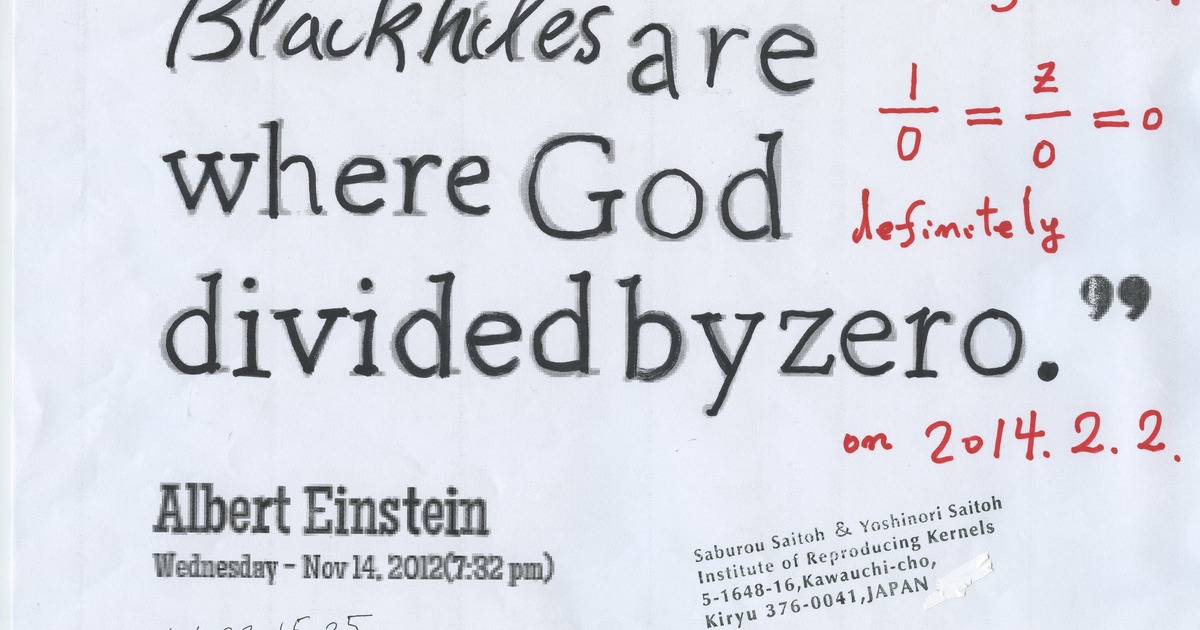 Blackholes are
where God
divided by zero.”
1/0 = z/0 = 0
definitely
on 2014. 2. 2.
Albert Einstein
Wednesday - Nov 14, 2012(7:32 pm)
Saburou Saitoh & Yoshinori Saitoh
Institute of Reproducing Kernels
5-1648-16,Kawauchi-cho,
Kiryu 376-0041,JAPAN